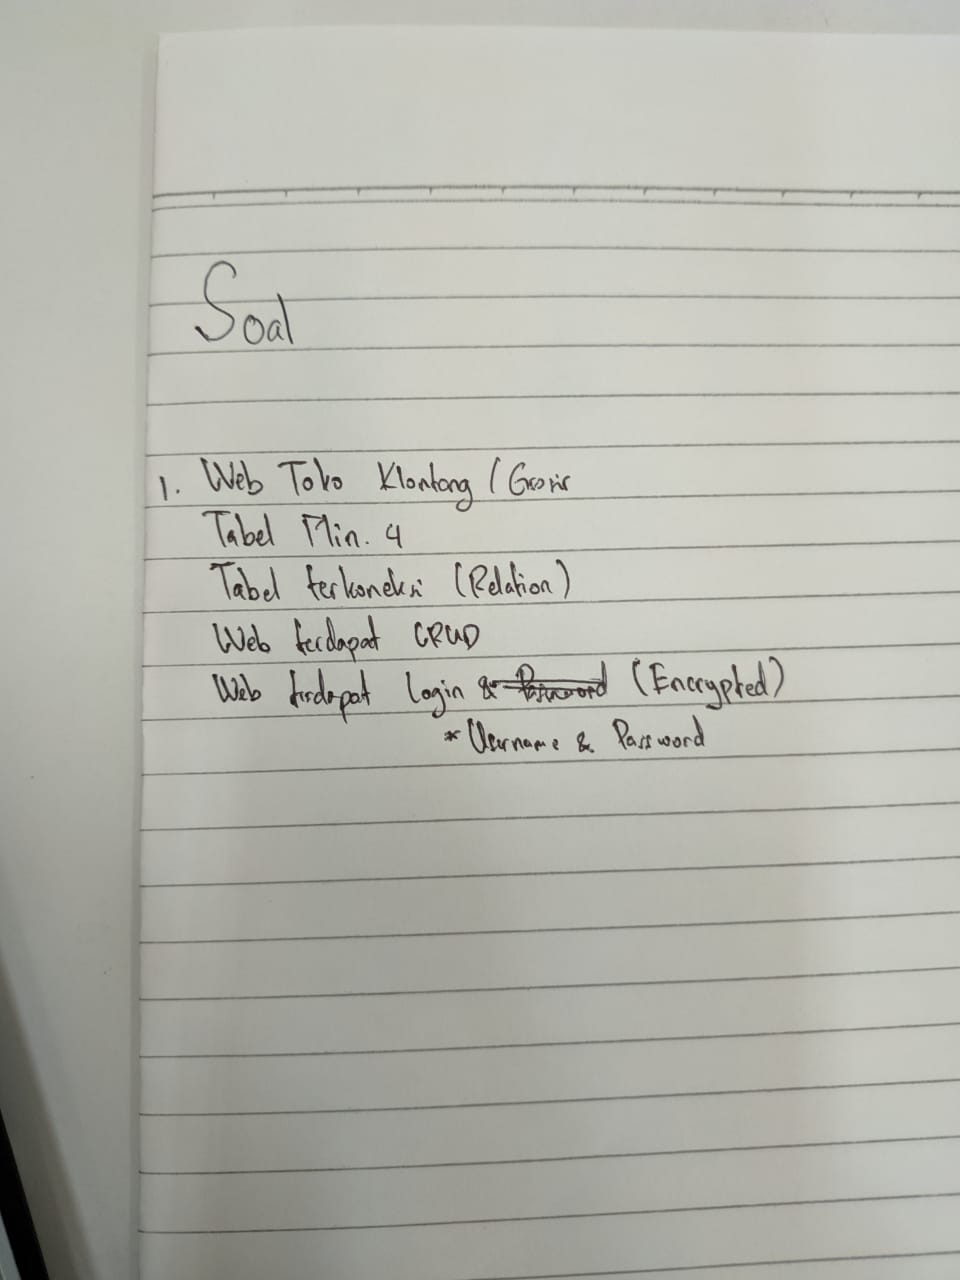 Soal
1. Web Toko Klontong / Grosir
Tabel Min. 4
Tabel terkoneksi (Relation)
Web terdapat CRUD
Web terdapat login & Password (Encrypted)
* Username & Password